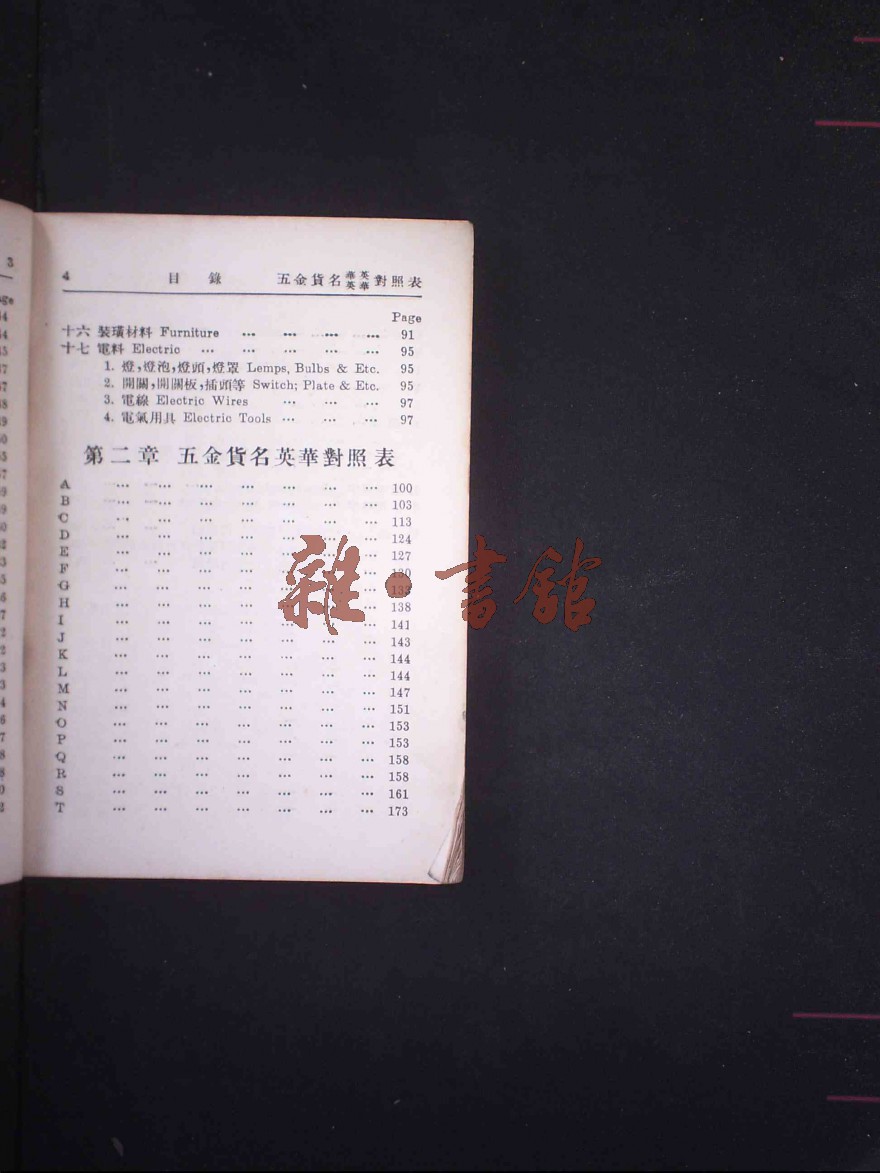 4 目錄 五金貨名華英英華對照表
Page
十六 裝璜材料 Furniture ... ... ... ... 91
十七 電料 Electric ... ... ... ... ... 95
1. 燈,燈泡,燈頭,燈罩 Lemps, Bulbs & Etc. 95
2. 開關,開關板,插頭等 Switch; Plate & Etc. 95
3. 電線 Electric Wires ... ... ... 97
4. 電氣用具 Electric Tools ... ... ... 97
第二章 五金貨名英華對照表
A ... ... ... ... ... ... ... 100
B ... ... ... ... ... ... ... 103
C ... ... ... ... ... ... ... 113
D ... ... ... ... ... ... ... 124
E ... ... ... ... ... ... ... 127
F ... ... ... ... ... ... ... 130
G ... ... ... ... ... ... ...
H ... ... ... ... ... ... ... 138
I ... ... ... ... ... ... ... 141
J ... ... ... ... ... ... ... 143
K ... ... ... ... ... ... ... 144
L ... ... ... ... ... ... ... 144
M ... ... ... ... ... ... ... 147
N ... ... ... ... ... ... ... 151
O ... ... ... ... ... ... ... 153
P ... ... ... ... ... ... ... 153
Q ... ... ... ... ... ... ... 158
R ... ... ... ... ... ... ... 158
S ... ... ... ... ... ... ... 161
T ... ... ... ... ... ... ... 173
雜·書館